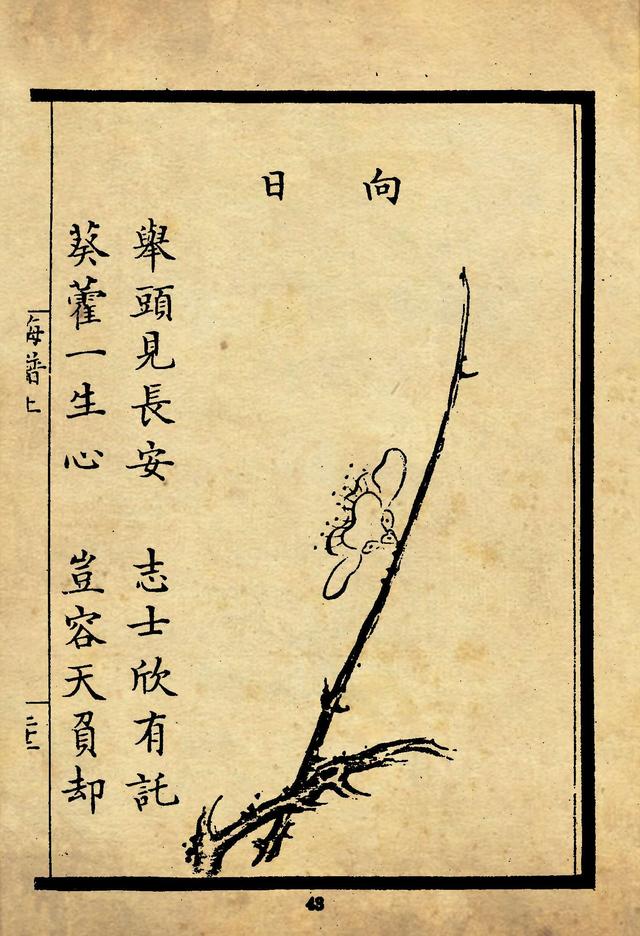 向日
舉頭見長安 志士欣有託
葵藿一生心 豈容天負却
梅譜上
43